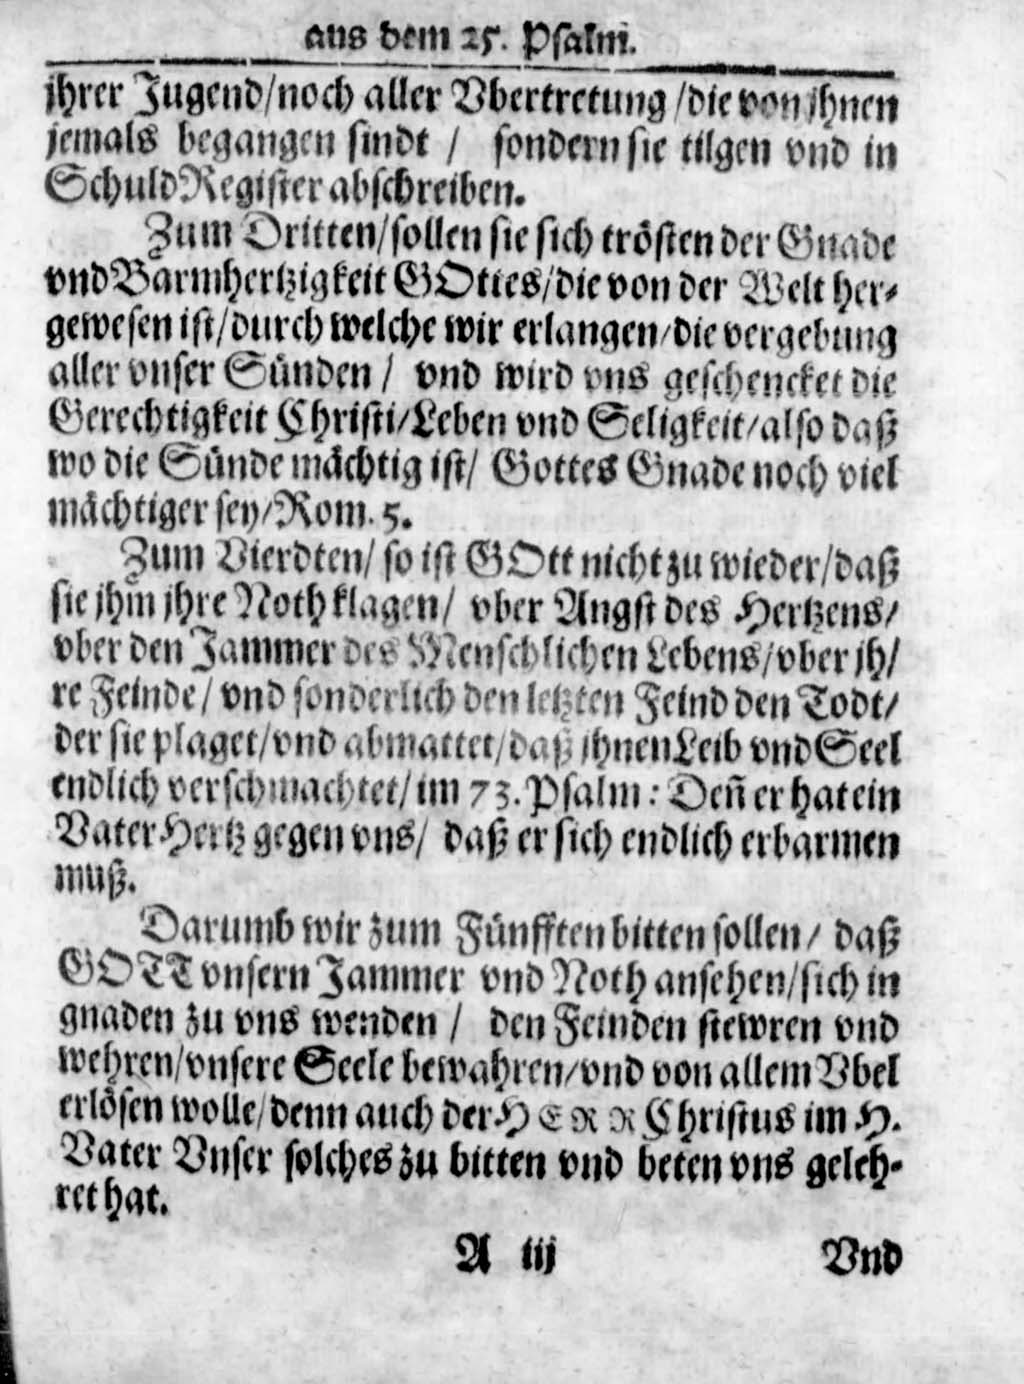 aus dem 25. Psalm.
jhrer Jugend/noch aller Vbertretung/die von jhnen
jemals begangen sindt / sondern sie tilgen vnd in
SchuldRegister abschreiben.
Zum Dritten/sollen sie sich trösten der Gnade
vnd Barmhertzigkeit GOttes/die von der Welt her-
gewesen ist/durch welche wir erlangen/die vergebung
aller vnser Sünden / vnd wird vns geschencket die
Gerechtigkeit Christi/Leben vnd Seligkeit/also daß
wo die Sünde mächtig ist/ Gottes Gnade noch viel
mächtiger sey/Rom. 5.
Zum Vierdten/ so ist GOtt nicht zu wieder/daß
sie jhm jhre Noth klagen/ vber Angst des Hertzens/
vber den Jammer des Menschlichen Lebens/vber jh/
re Feinde/ vnd sonderlich den letzten Feind den Todt/
der sie plaget/vnd abmattet/daß jhnen Leib vnd Seel
endlich verschmachtet/im 73. Psalm: Deñ er hat ein
Vater Hertz gegen vns/ daß er sich endlich erbarmen
muß.
Darumb wir zum Fünfften bitten sollen/ daß
GOTT vnsern Jammer vnd Noth ansehen/sich in
gnaden zu vns wenden / den Feinden stewren vnd
wehren/vnsere Seele bewahren/vnd von allem Vbel
erlösen wolle/denn auch der HERR Christus im H.
Vater Vnser solches zu bitten vnd beten vns geleh-
ret hat.
A iij Vnd